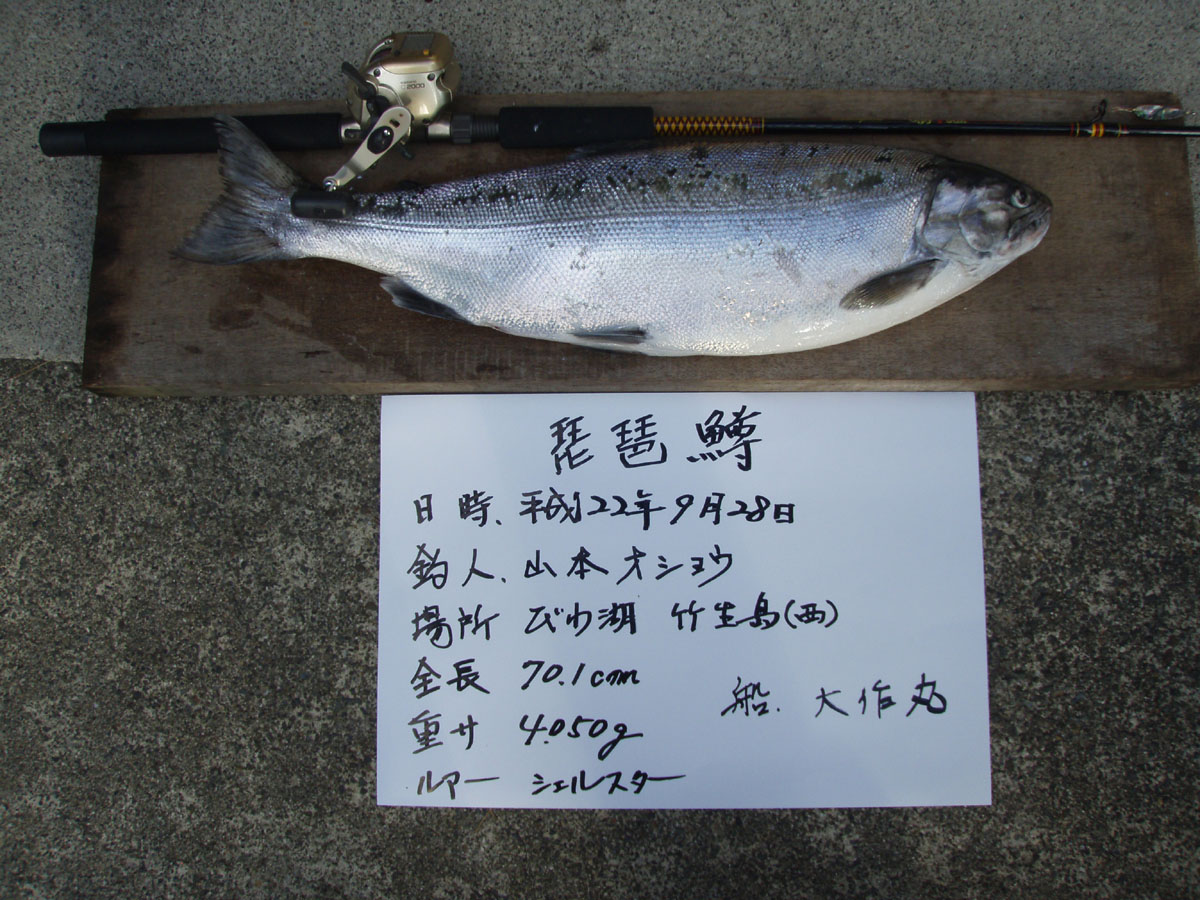 琵琶鱒
日時、平成22年9月28日
釣人、山本オショウ
場所 びわ湖 竹生島(西)
全長 70.1cm
船、大作丸
重サ 4.050g
ルアー シェルスター